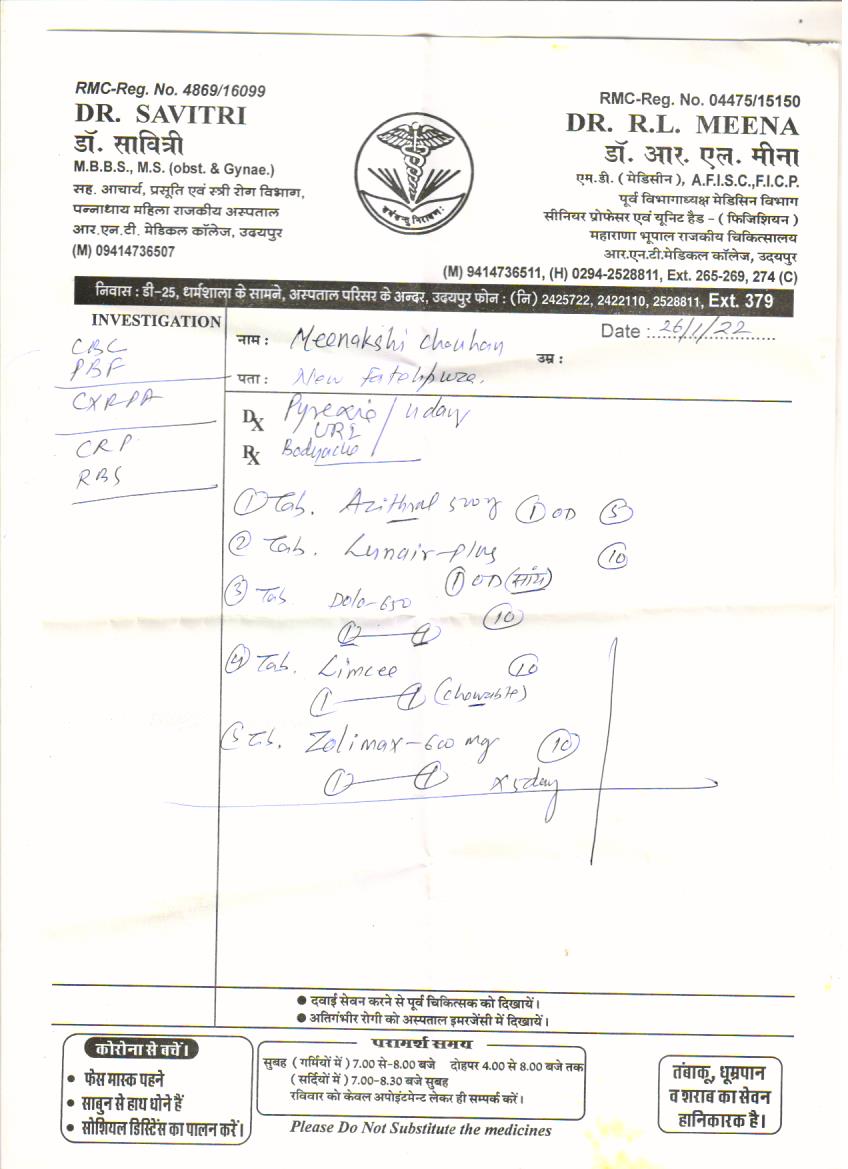 RMC-Reg. No. 4869/16099
DR. SAVITRI
डॉ. सावित्री
M.B.B.S., M.S. (obst. & Gynae.)
सह. आचार्य, प्रसूति एवं स्त्री रोग विभाग,
पन्नाधाय महिला राजकीय अस्पताल
आर.एन.टी. मेडिकल कॉलेज, उदयपुर
(M) 09414736507
RMC-Reg. No. 04475/15150
DR. R.L. MEENA
डॉ. आर. एल. मीना
एम.डी. ( मेडिसीन ), A.F.I.S.C.,F.I.C.P.
पूर्व विभागाध्यक्ष मेडिसिन विभाग
सीनियर प्रोफेसर एवं यूनिट हैड - ( फिजिशियन )
महाराणा भूपाल राजकीय चिकित्सालय
आर.एन.टी.मेडिकल कॉलेज, उदयपुर
(M) 9414736511, (H) 0294-2528811, Ext. 265-269, 274 (C)
निवास : डी-25, धर्मशाला के सामने, अस्पताल परिसर के अन्दर, उदयपुर फोन : (नि) 2425722, 2422110, 2528811, Ext. 379
INVESTIGATION
CBC
PBF
CXRPA
CRP
RBS
Date : 26/1/22
नाम : Meenakshi Chouhan
उम्र :
पता : New Fatehpura.
Dx Pyrexia / 4 day
URI
Rx Bodyache
① Tab. Azithral 500mg ① OD ⑤
② Tab. Lunair-plus ⑩
① OD (सांय)
③ Tab. Dolo-650 ⑩
①—①
④ Tab. Limcee ⑩
①—① (chowable)
5 Tab. Zolimax-600 mg ⑩
①—① x 5day
● दवाई सेवन करने से पूर्व चिकित्सक को दिखायें।
● अतिगंभीर रोगी को अस्पताल इमरजेंसी में दिखायें।
कोरोना से बचें।
• फेस मास्क पहने
• साबुन से हाथ धोने हैं
• सोशियल डिस्टिेंस का पालन करें।
परामर्श समय
सुबह ( गर्मियों में ) 7.00 से-8.00 बजे दोहपर 4.00 से 8.00 बजे तक
( सर्दियों में ) 7.00-8.30 बजे सुबह
रविवार को केवल अपोइंटमेन्ट लेकर ही सम्पर्क करें।
Please Do Not Substitute the medicines
तंबाकू, धूम्रपान
व शराब का सेवन
हानिकारक है।